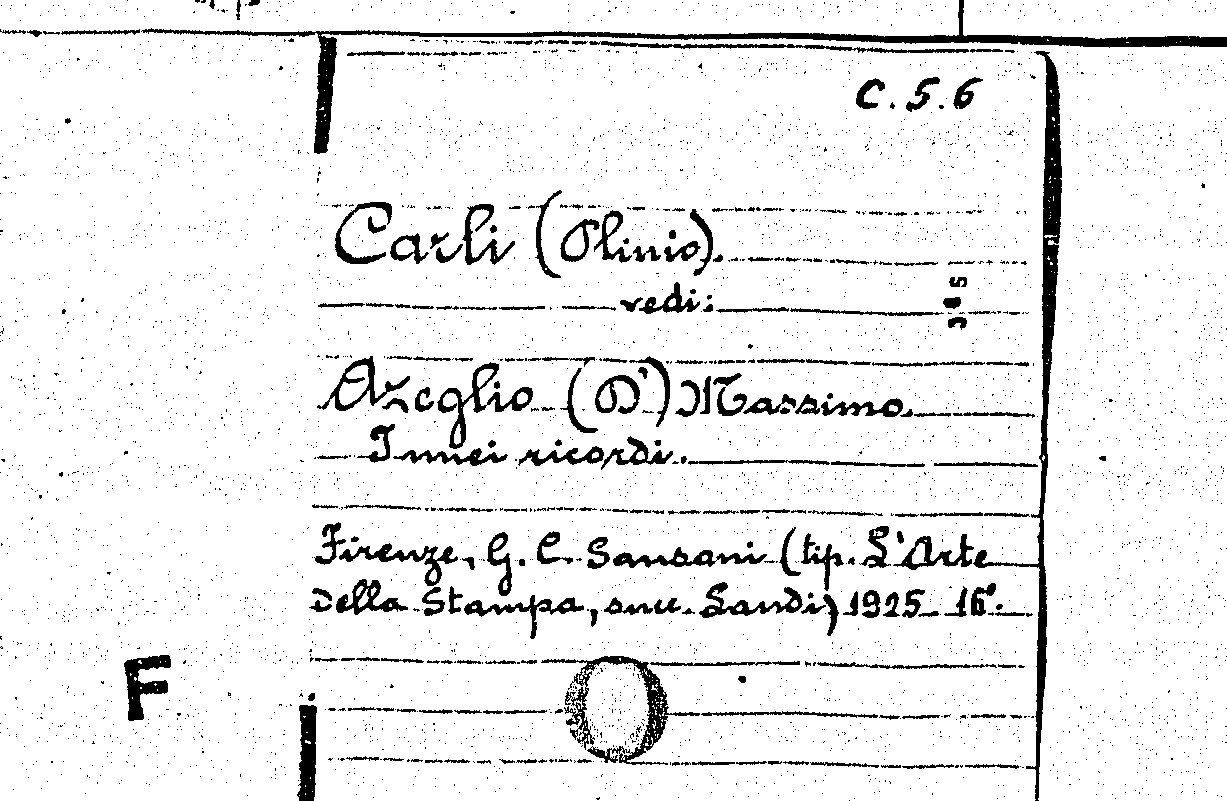 C.5.6
Carli (Plinio).
vedi:
Azeglio (D') Massimo.
I miei ricordi.
Firenze, G. C. Sansoni (tip. L'Arte
della Stampa, succ. Landi) 1925 16°.
F